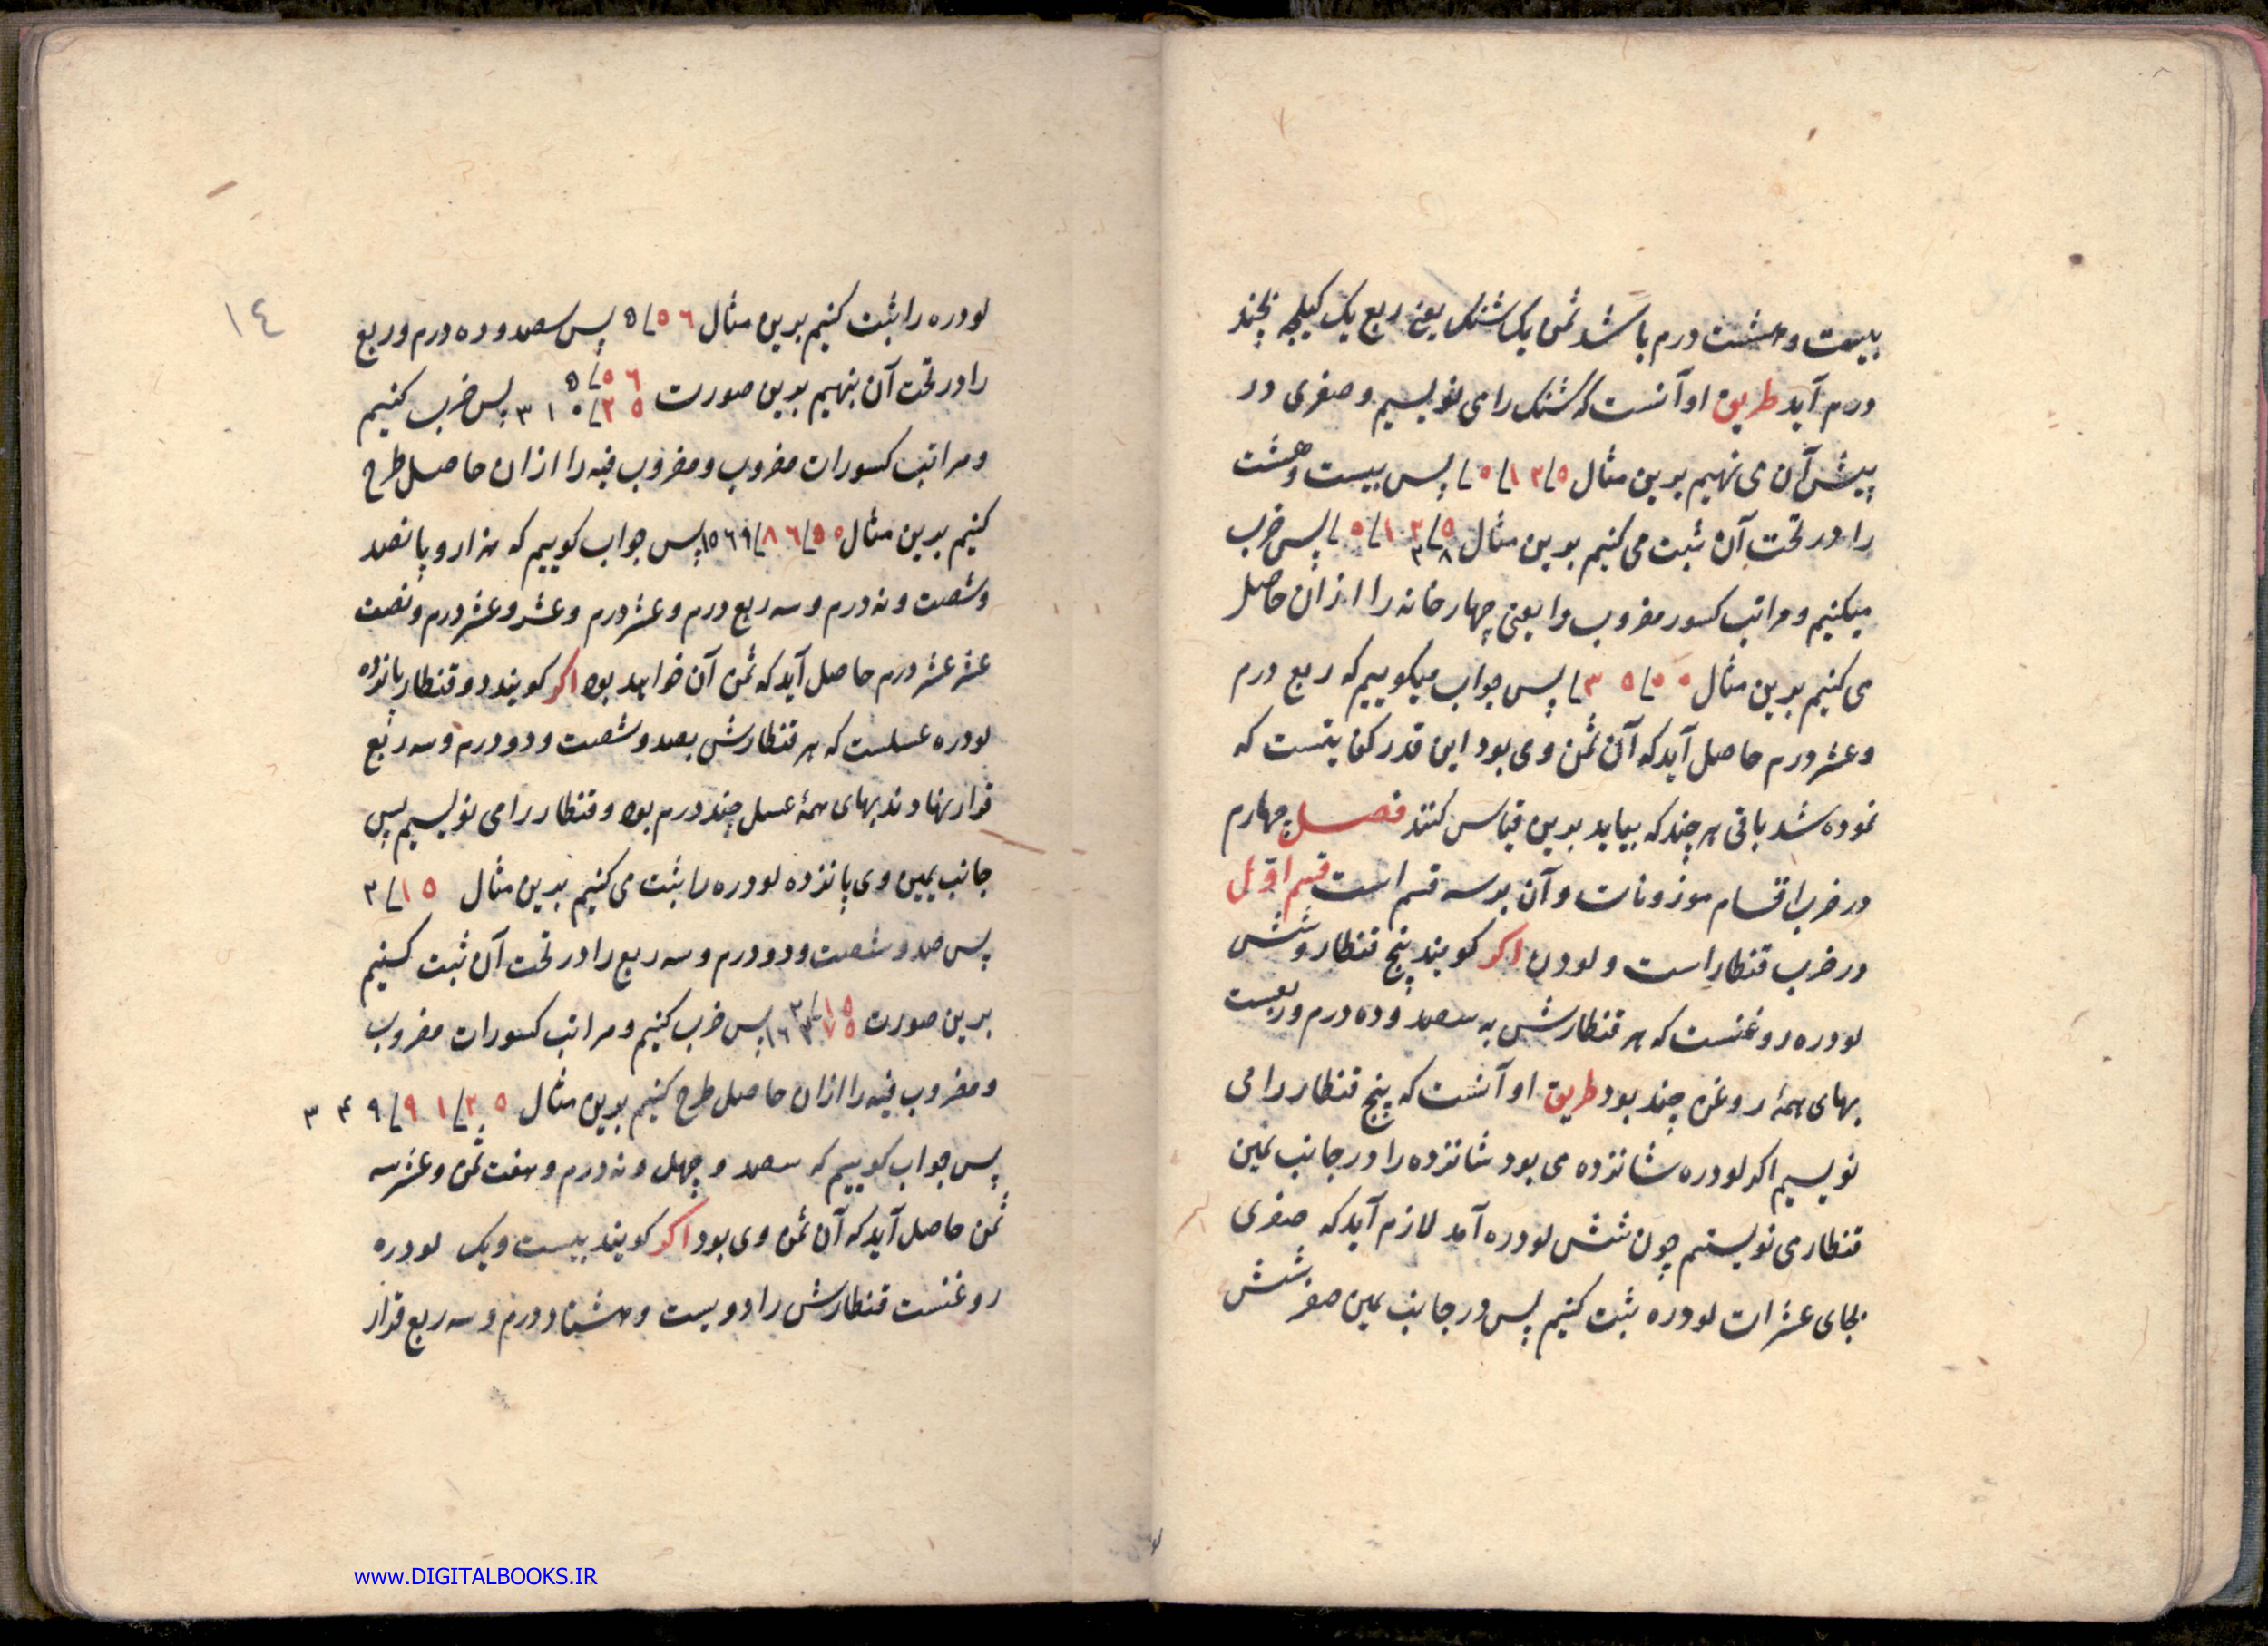 بیست و هشت درم باشد ثمن یک شنک یعنی ربع یک کیلجه بچند
درم آید طریق او آنست که شنک را می نویسیم و صفری در
پیش آن می نهیم برین مثال پس بیست و هشت
را در تحت آن ثبت می کنیم برین مثال پس ضرب
میکنیم و مراتب کسور مضروب را یعنی چهار خانه را از آن حاصل
می کنیم برین مثال پس جواب میکوییم که ربع درم
و عشر درم حاصل آید که آن ثمن وی بود این قدر کفایتست که
نموده شد باقی هر چند که بیاید برین قیاس کنند فصل چهارم
در ضرب اقسام موزونات و آن بر سه قسم است قسم اول
در ضرب قنطار است و لودره اکر کویند پنج قنطار و شش
لودره روغنست که هر قنطارش به سصد و ده درم و ربعست
بهای همهٔ روغن چند بود طریق او آنست که پنج قنطار را می
نویسیم اکر لودره شانزده می بود شانزده را در جانب یمین
قنطار می نویستیم چون شش لودره آمد لازم آید که صفری
بجای عشرات لودره ثبت کنیم پس در جانب یمین صفر شش
لو
١٤
لودره را ثبت کنیم برین مثال ٥ / ٥٦ پس سصد و ده درم و ربع
را در تحت آن بنهیم برین صورت ٥ / ٥٦ ٣١٠ / ٢٥ پس ضرب کنیم
و مراتب کسورات مضروب و مضروب فیه را از آن حاصل طرح
کنیم برین مثال ١٥٦٩ / ٨٦ / ٥٥ پس جواب کوییم که هزار و پانصد
و شصت و نه درم و سه ربع درم و عشر درم و عشر و عشر درم و نصف
عشر عشر درم حاصل آید که ثمن آن خواهد بود اکر کویند دو قنطار پانزده
لودره عسلست که هر قنطارش بصد و شصت و دو درم و سه ربع
قرار نهادند بهای همهٔ عسل چند درم بود و قنطار را می نویسیم پس
جانب یمین وی پانزده لودره را ثبت می کنیم بدین مثال ٣ / ١٥
پس صد و شصت و دو درم و سه ربع را در تحت آن ثبت کنیم
برین صورت پس ضرب کنیم و مراتب کسورات مضروب
و مضروب فیه را از آن حاصل طرح کنیم برین مثال ٣٤٩ / ٩١ / ٢٥
پس جواب کوییم که سصد و چهل و نه درم و هفت ثمن و عشر سه
ثمن حاصل آید که آن ثمن وی بود اکر کویند بیست و یک لودره
روغنست قنطارش را دویست و هشتاد درم و سه ربع قرار
www.DIGITALBOOKS.IR